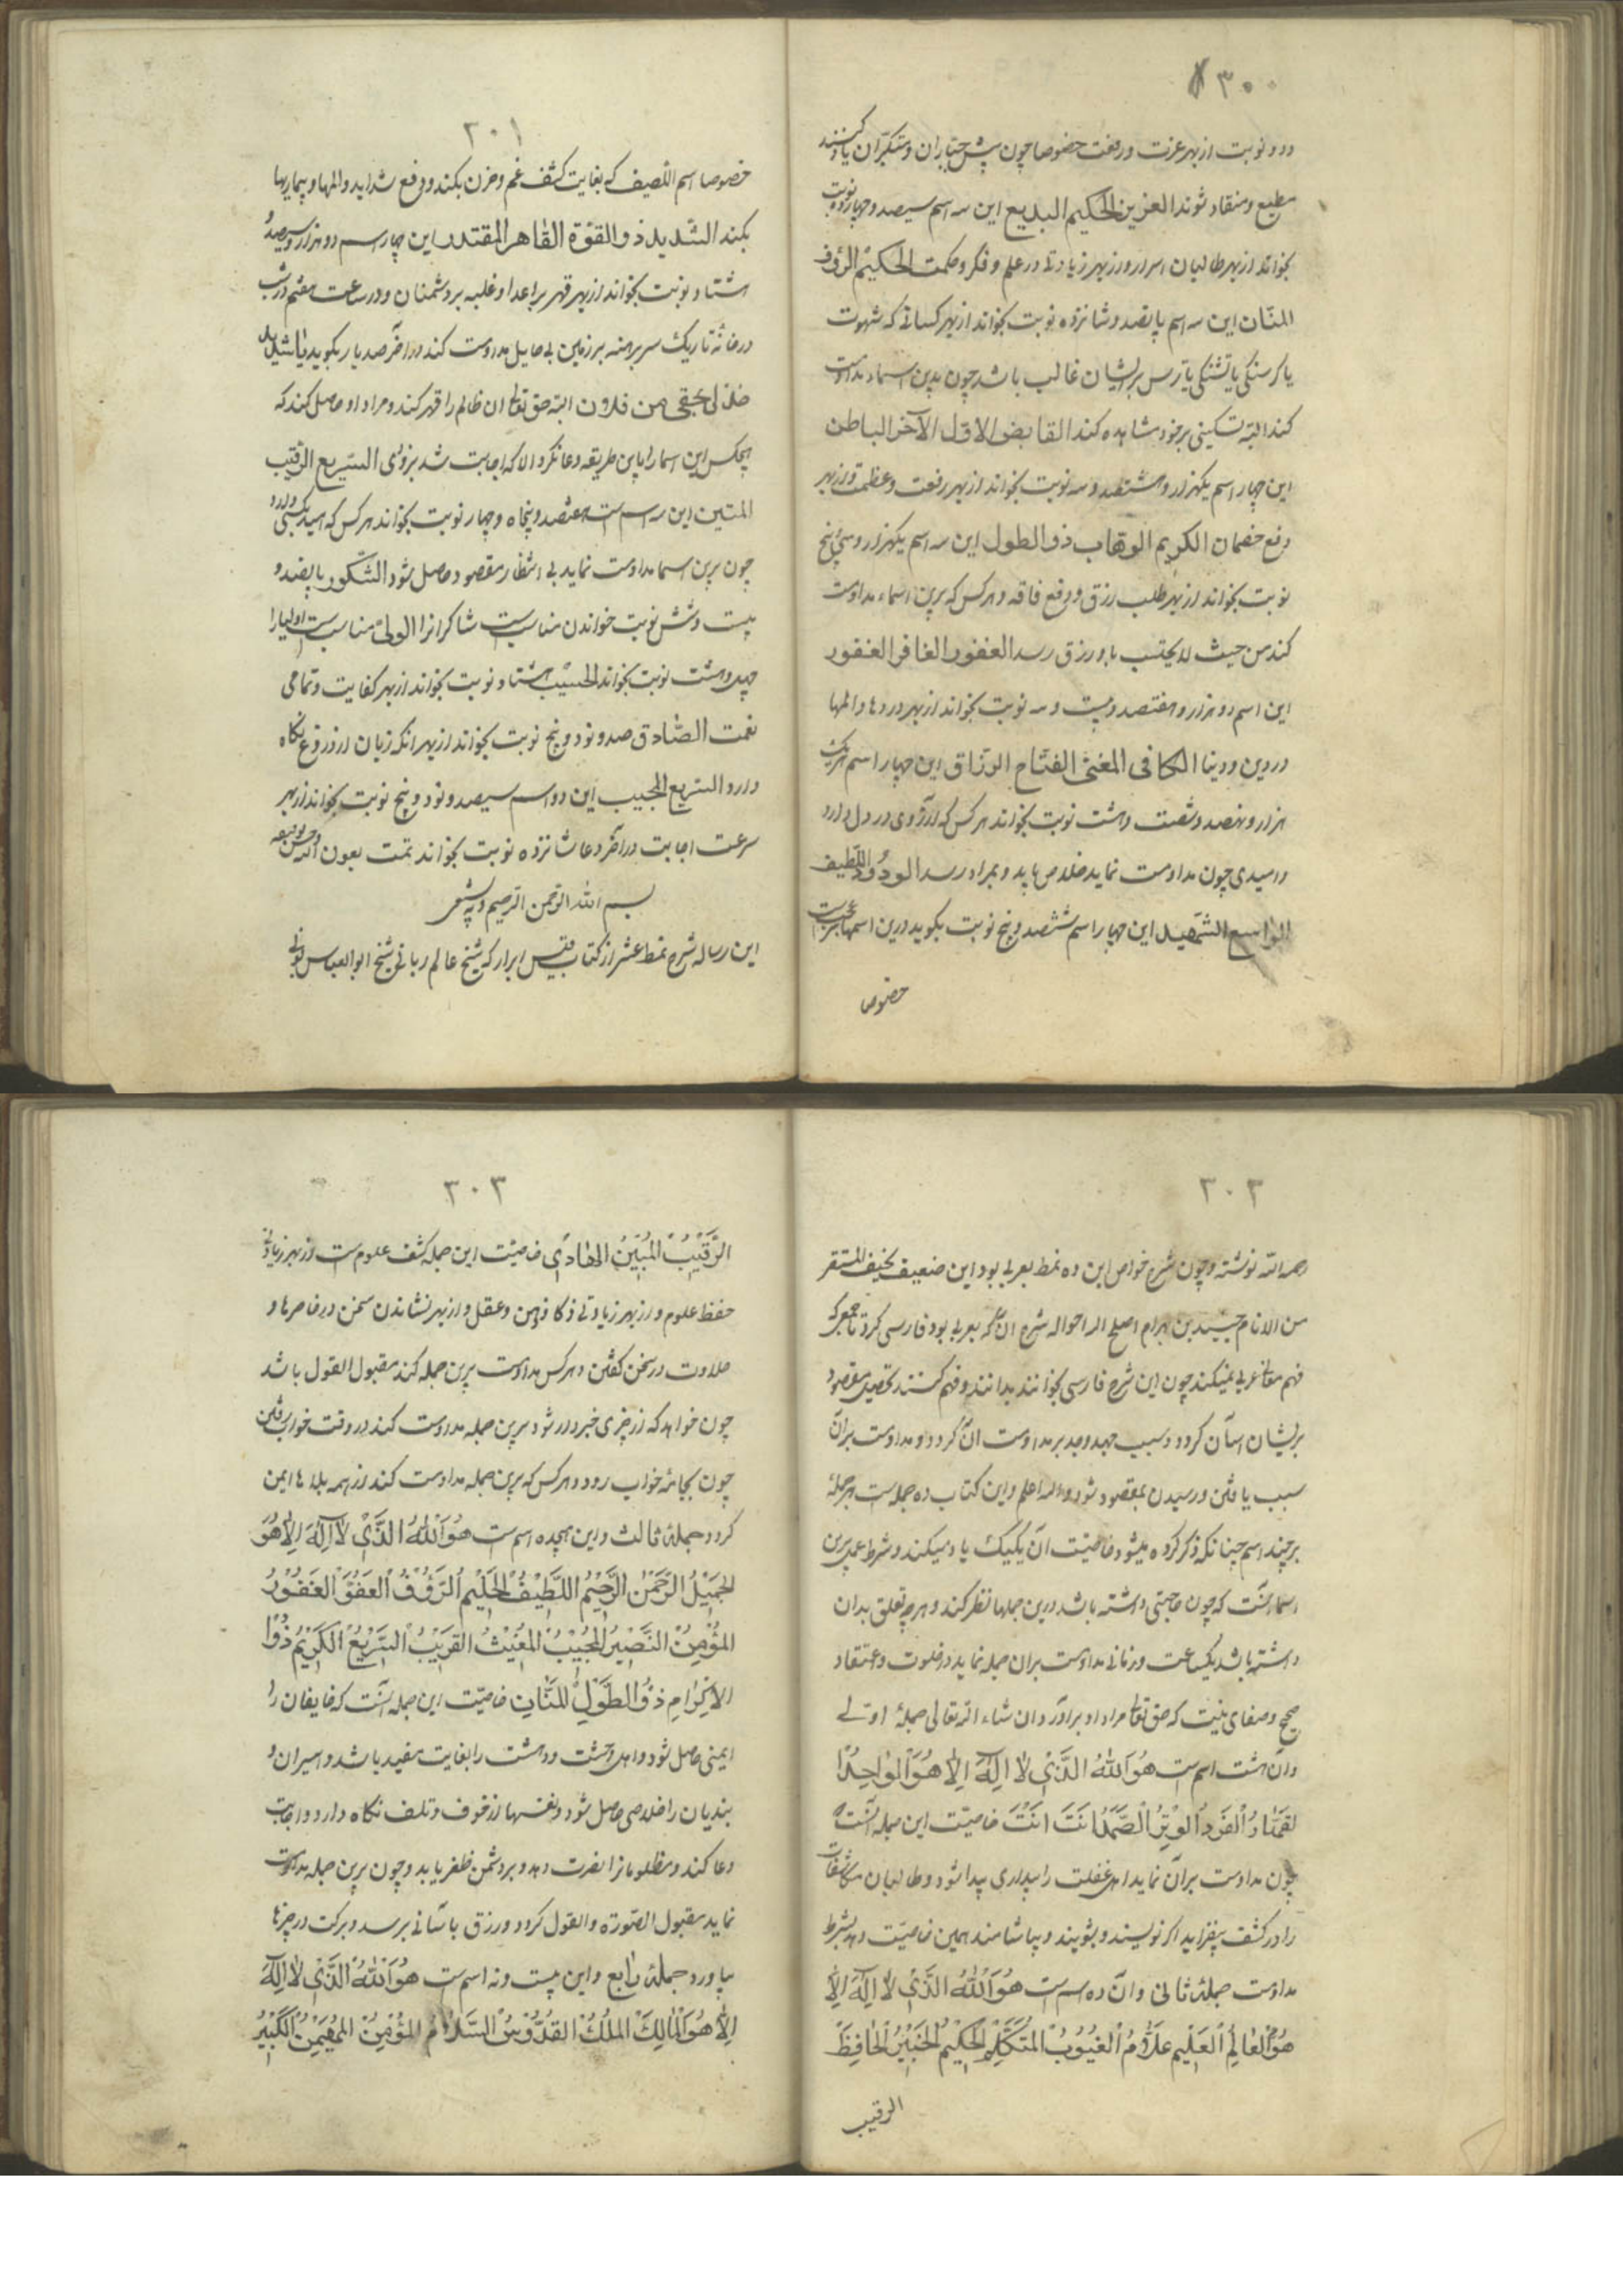 ۳۰۰
ودو نوبت از بهر عزت ورفعت خصوصا چون پیش جباران ومتکبران یاد کنند
مطیع ومنقاد شوند العزیز الحکیم البدیع این سه اسم سیصد وچهارده نوبت
بخواند از بهر طالبان اسرار واز بهر زیادتی در علم وفکر وحکمت الحکیم الرؤف
المنّان این سه اسم پانصد وشانزده نوبت بخواند از بهر کسانی که شهوت
یا کرسنکی یا تشنکی یا ترس بر ایشان غالب باشد چون بدین اسماء مداومت
کند البته تسکینی بر خود مشاهده کند القابض الاوّل الآخر الباطن
این چهار اسم یکهزار وهشتصد وسه نوبت بخواند از بهر رفعت وعظمت واز بهر
دفع خصمان الکریم الوهّاب ذو الطول این سه اسم یکهزار وسی وپنج
نوبت بخواند از بهر طلب رزق ودفع فاقه وهر کس که برین اسماء مداومت
کند من حیث لا یحتسب باو رزق رسد العفوّ الغافر الغفور
این اسم دو هزار وهفتصد وبیست وسه نوبت بخواند از بهر دردها والمها
در دین ودنیا الکافی المغنی الفتّاح الرزّاق این چهار اسم هر یک
هزار ونهصد وشصت وهشت نوبت بخواند هر کس که ارزوی در دل دارد
وامیدی چون مداومت نماید خلاص یابد وبمراد رسد الودود اللّطیف
الواسع الشهید این چهار اسم ششصد وپنج نوبت بکوید درین اسمها
خصوصا
۳۰۱
خصوصا اسم اللصیف که بغایت کشف غم وحزن بکند ودفع شداید والمها وبیماریها
بکند الشدید ذو القوّة القاهر المقتدر این چهار اسم دو هزار وسیصد
هشتاد نوبت بخواند از بهر قهر بر اعدا وغلبه بر دشمنان ودر ساعت هفتم در شب
در خانه تاریک سر برهنه بر زمین بی حایل مداومت کند ودر اخر صد بار بکوید یا شدید
خذ لی بحقی من فلان البته حق تعالی ان ظالم را قهر کند ومراد او حاصل کند که
هیچکس این اسما را باین طریقه دعا نکرد الا که اجابت شد بزودی السّریع الرقیب
المتین این سه اسم است هفتصد وپنجاه وچهار نوبت بخواند هر کس که امید
چون برین اسما مداومت نماید بی انتظار مقصود حاصل شود الشّکور پانصد و
بیست وشش نوبت خواندن مناسب است شاکرانرا الولیّ مناسب است اولیا را
چهل وهشت نوبت بخواند الحسیب هشتاد نوبت بخواند از بهر کفایت وتمامی
نعمت الصّادق صد ونود وپنج نوبت بخواند از بهر انکه زبان از دروغ نکاه
دارد السّریع المجیب این دو اسم سیصد ونود وپنج نوبت بخواند از بهر
سرعت اجابت در اخر دعا شانزده نوبت بخواند تمت بعون الله وحسن توفیقه
بسم الله الرحمن الرحیم وبه نستعین
این رساله شرح نمط عشر از کتاب قبس ابرار که شیخ عالم ربانی شیخ ابو العباس بونی
۳۰۲
رحمه الله نوشته وچون شرح خواص این ده نمط بعربی بود این ضعیف نحیف المستقر
من الانام جنید بن بهرام اصلح الله احواله شرح ان که بعربی بود فارسی کرد تا جمعی که
فهم معانی عربی نمیکنند چون این شرح فارسی بخوانند بدانند وفهم کنند تحصیل مقصود
بر ایشان اسان کردد وسبب جهد وجد بر مداومت ان کردد ومداومت بران
سبب یافتن ورسیدن بمقصود شود والله اعلم واین کتاب ده جمله است هر جملهٔ
بر چند اسم چنانکه ذکر کرده میشود خاصیت ان یکیک یاد میکند وشرط عمل برین
اسما انست که چون حاجتی داشته باشد درین جملها نظر کند وهر چه تعلق بدان
داشته باشد یکساعت وزمانی مداومت بران جمله نماید در خلوت واعتقاد
صحیح وصفای نیت که حق تعالی مراد او براورد ان شاء الله تعالی جملهٔ اولی
وان هشت اسم است هُوَ اللهُ الَّذِی لا اِلهَ اِلّا هُوَ الواحِدُ
القهّارُ الفَردُ الوِترُ الصَّمَدُ اَنتَ اَنتَ خاصیّت این جمله انست که
چون مداومت بران نماید اهل غفلت را بیداری پیدا شود وطالبان مکاشفات
را در کشف بیفزاید اکر نویسند وبشویند وبیاشامند همین خاصیّت دهد بشرط
مداومت جملهٔ ثانی وان ده اسم است هُوَ اللهُ الَّذِی لا اِلهَ اِلّا
هُوَ العالِمُ العَلیمُ عَلّامُ الغُیُوبُ المُتَکَلِّمُ الحَکیمُ الخَبیرُ الحافِظُ
الرقیب
۳۰۳
الرَّقیبُ المُبینُ الهادی خاصیّت این جمله کشف علوم است واز بهر زیادتی
حفظ علوم واز بهر زیادتی ذکا وذهن وعقل واز بهر نشاندن سخن در خاطرها و
حلاوت در سخن کفتن وهر کس مداومت برین جمله کند مقبول القول باشد
چون خواهد که از چیزی خبردار شود برین جمله مداومت کند در وقت خواب رفتن
چون بجانهٔ خواب رود وهر کس که برین جمله مداومت کند از همه بلاها ایمن
کردد جملهٔ ثالث واین هیجده اسم است هُوَ اللهُ الَّذِی لا اِلهَ اِلّا هُوَ
الجَمیلُ الرَّحمنُ الرَّحیمُ اللَّطیفُ الحَلیمُ الرَّؤُفُ العَفُوُّ الغَفُورُ
المُؤمِنُ النَّصیرُ المُجیبُ المُغیثُ القَریبُ السَّریعُ الکَریمُ ذُو
الاِکرامِ ذُو الطَّولِ المَنّانِ خاصیّت این جمله انست که خایفان را
ایمنی حاصل شود واهل وحشت ودهشت را بغایت مفید باشد واسیران و
بندیان را خلاصی حاصل شود ونفسها از خوف وتلف نکاه دارد واجابت
دعا کند ومظلومانرا نصرت دهد وبر دشمن ظفر یابد وچون برین جمله مداومت
نماید مقبول الصّورة والقول کردد ورزق باسانی برسد وبرکت در چیزها
بیاورد جملهٔ رابع واین بیست ونه اسم است هُوَ اللهُ الَّذِی لا اِلهَ
اِلّا هُوَ المالِکُ المَلِکُ القُدُّوسُ السَّلامُ المُؤمِنُ المُهَیمِنُ الکَبیرُ